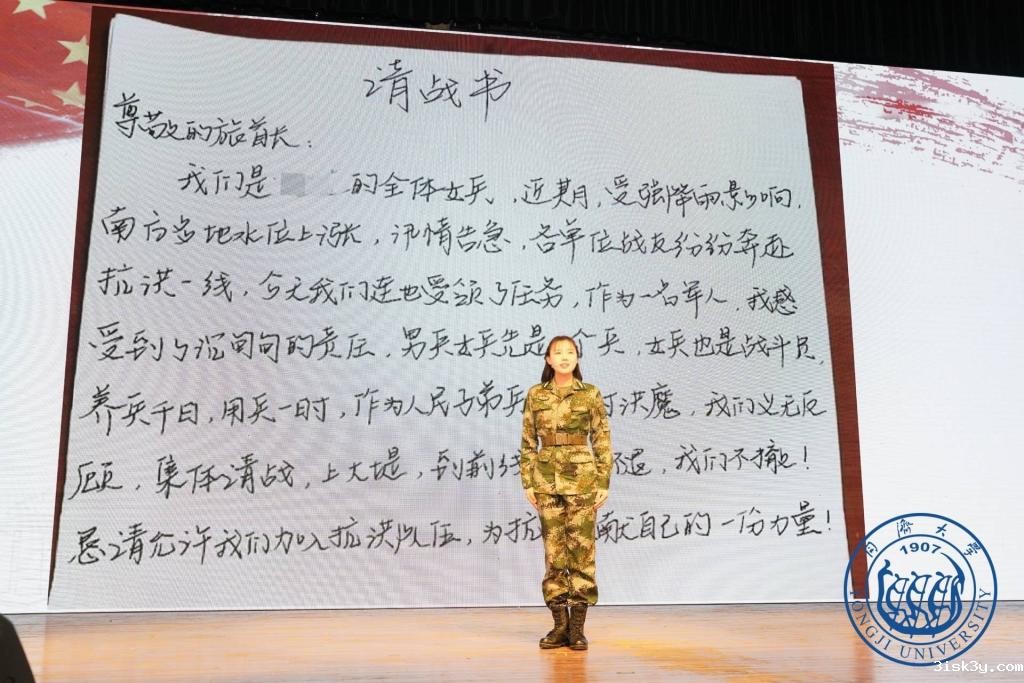 请战书
尊敬的旅首长:
我们是 的全体女兵,近期,受强降雨影响,
南方多地水位上涨,汛情告急,各单位战友纷纷奔赴
抗洪一线,今天我们连也受领了任务,作为一名军人,我感
受到了沉甸甸的责任,男兵女兵先是 个兵,女兵也是战斗员,
养兵千日,用兵一时,作为人民子弟兵 对洪魔,我们义无反
顾,集体请战,上大堤,到前线 不退,我们不撤!
恳请允许我们加入抗洪队伍,为抗 献自己的一份力量!
同濟大學
1907
TONGJI UNIVERSITY
3isk3y.com